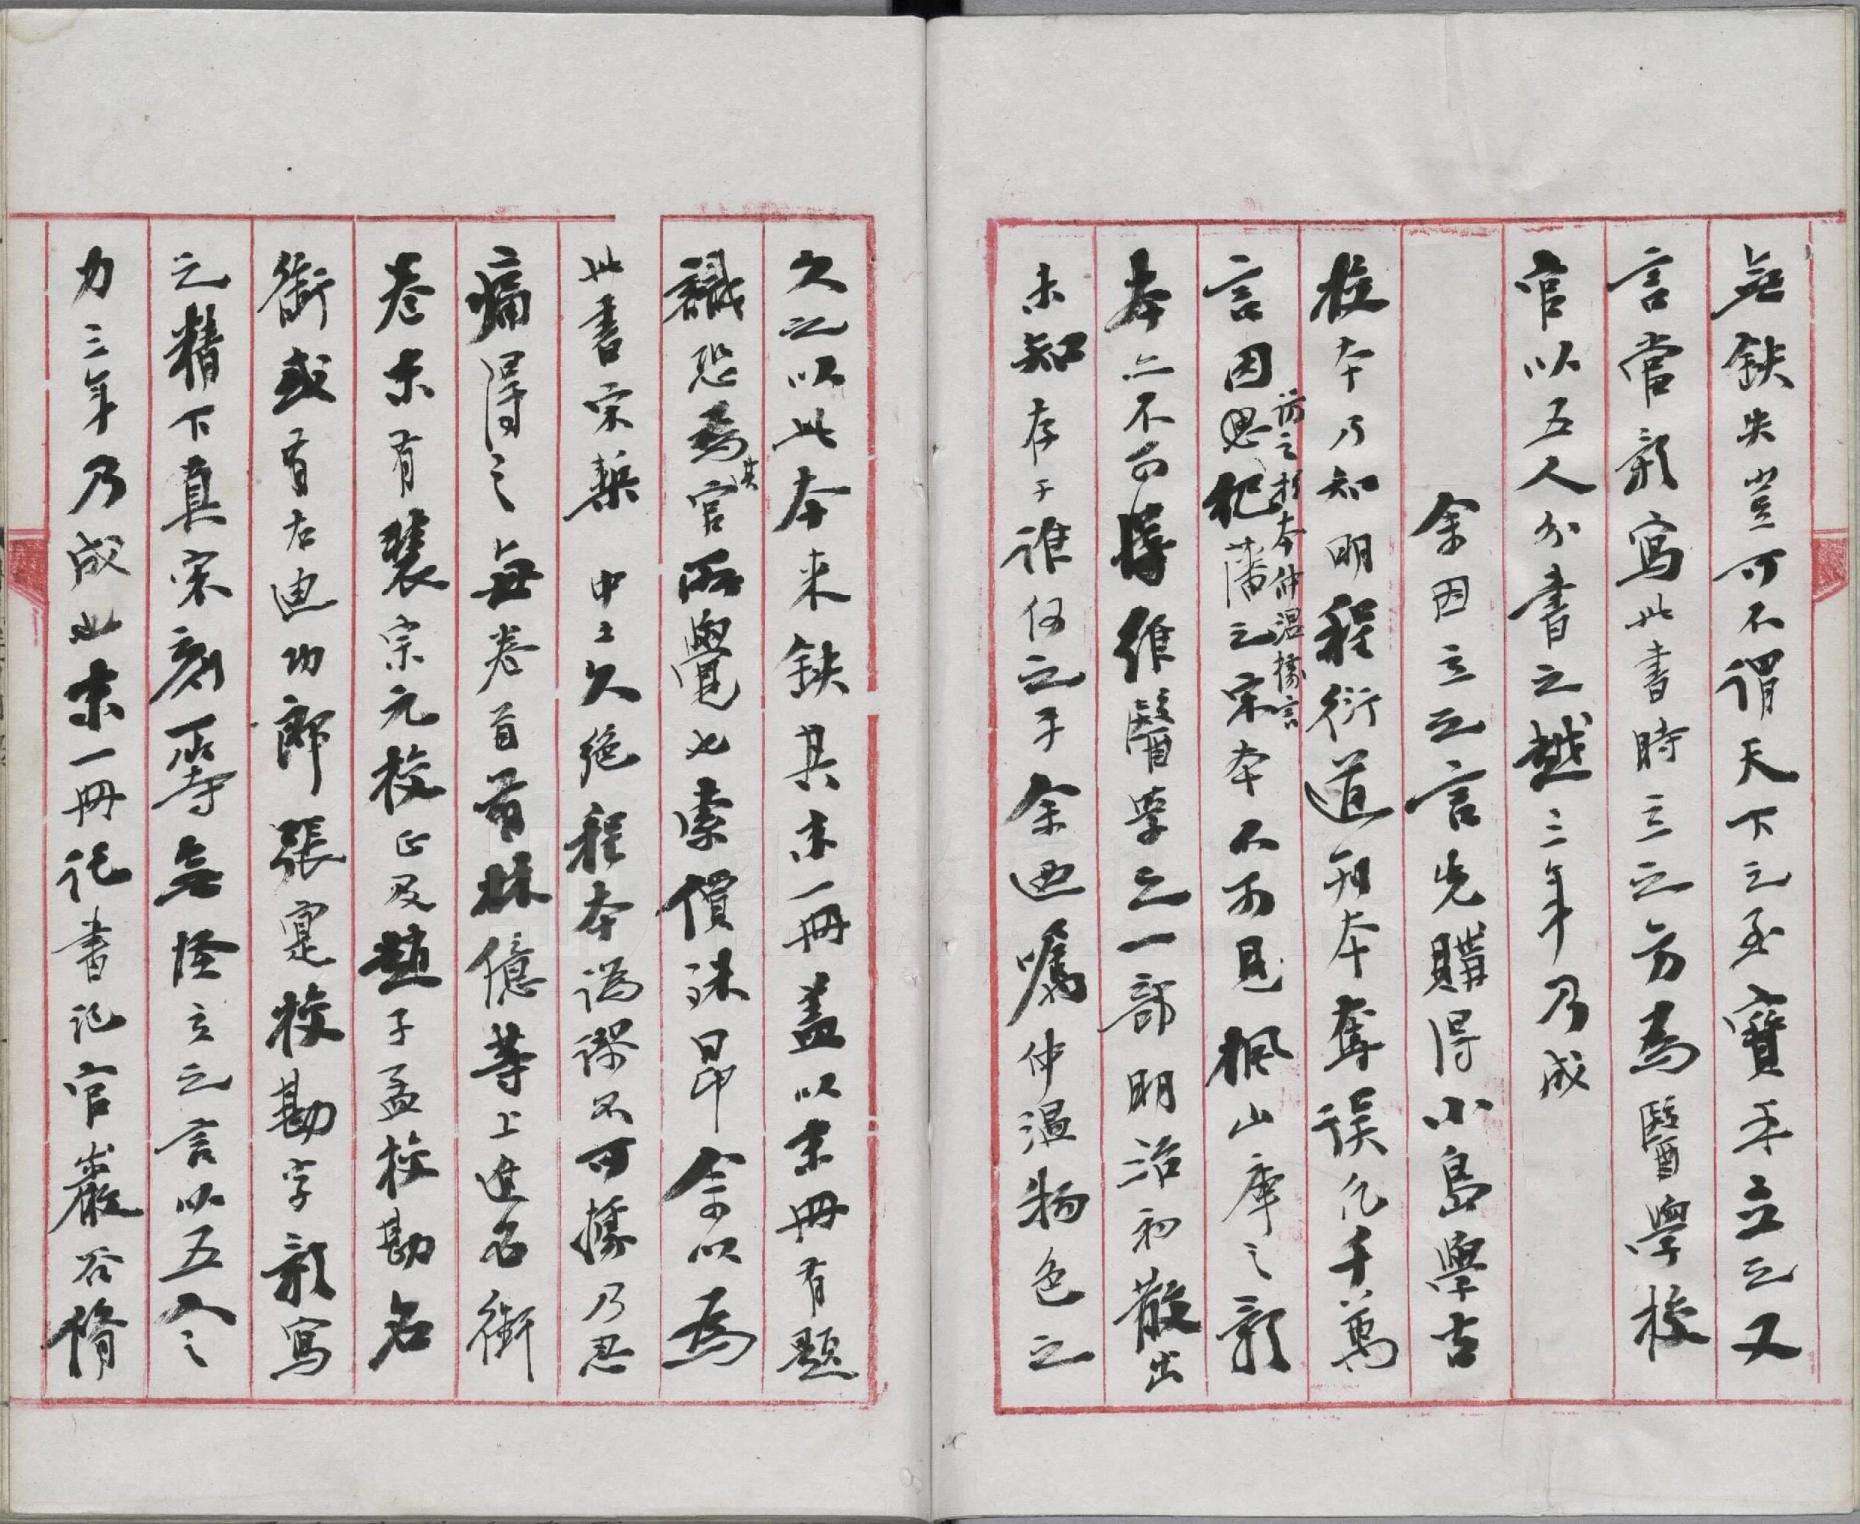 無缺失豈可不謂天下之至寶乎立之又
言當影寫此書時立之方為醫學校
官以五人分書之越三年乃成
余因立之言先購得小島學古
校本乃知明程衍道刊本奪誤凡千萬
言因思祀藩之宋本不可見楓山庫之影
訪之於本仲温據言
本亦不可得唯醫學之一部明治初散出
未知存于誰何之手余迺囑仲温物色之
久之以此本来缺其末一冊盖以末冊有題
識恐為其官所覺也索價殊昂余以為
此書宋槧中土久絶程本譌謬不可據乃忍
痛得之每卷首有林億等上進名銜
卷末有裴宗元校正及趙子孟校勘名
銜或有右迪功郎張寔校勘字影寫
之精下真宋刻一等無怪立之言以五人之
力三年乃成也末一冊記書記官巖谷脩